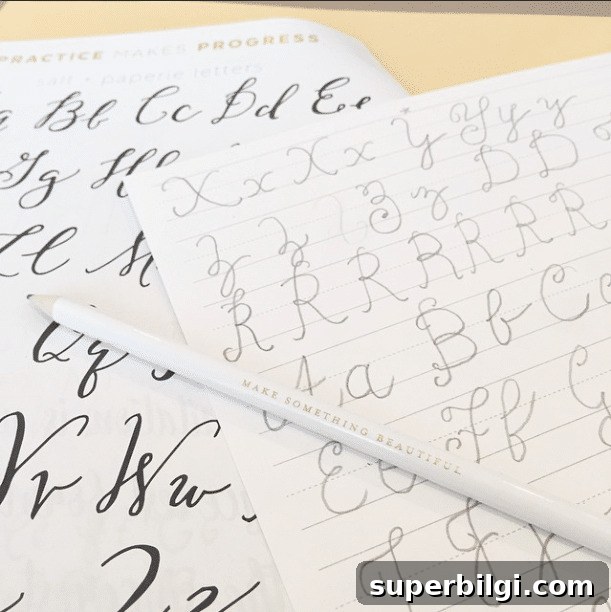 PRACTICE MAKES PROGRESS
salt + paperie letters
a Bb Cc Dd Ee
Gg Hh
Ll M
Qq
Vv Ww
Xx Xx Yy Yy y
Zz D D
R R R R R R R
A a Bb C
Ee Ff
MAKE SOMETHING BEAUTIFUL
superbilgi.com